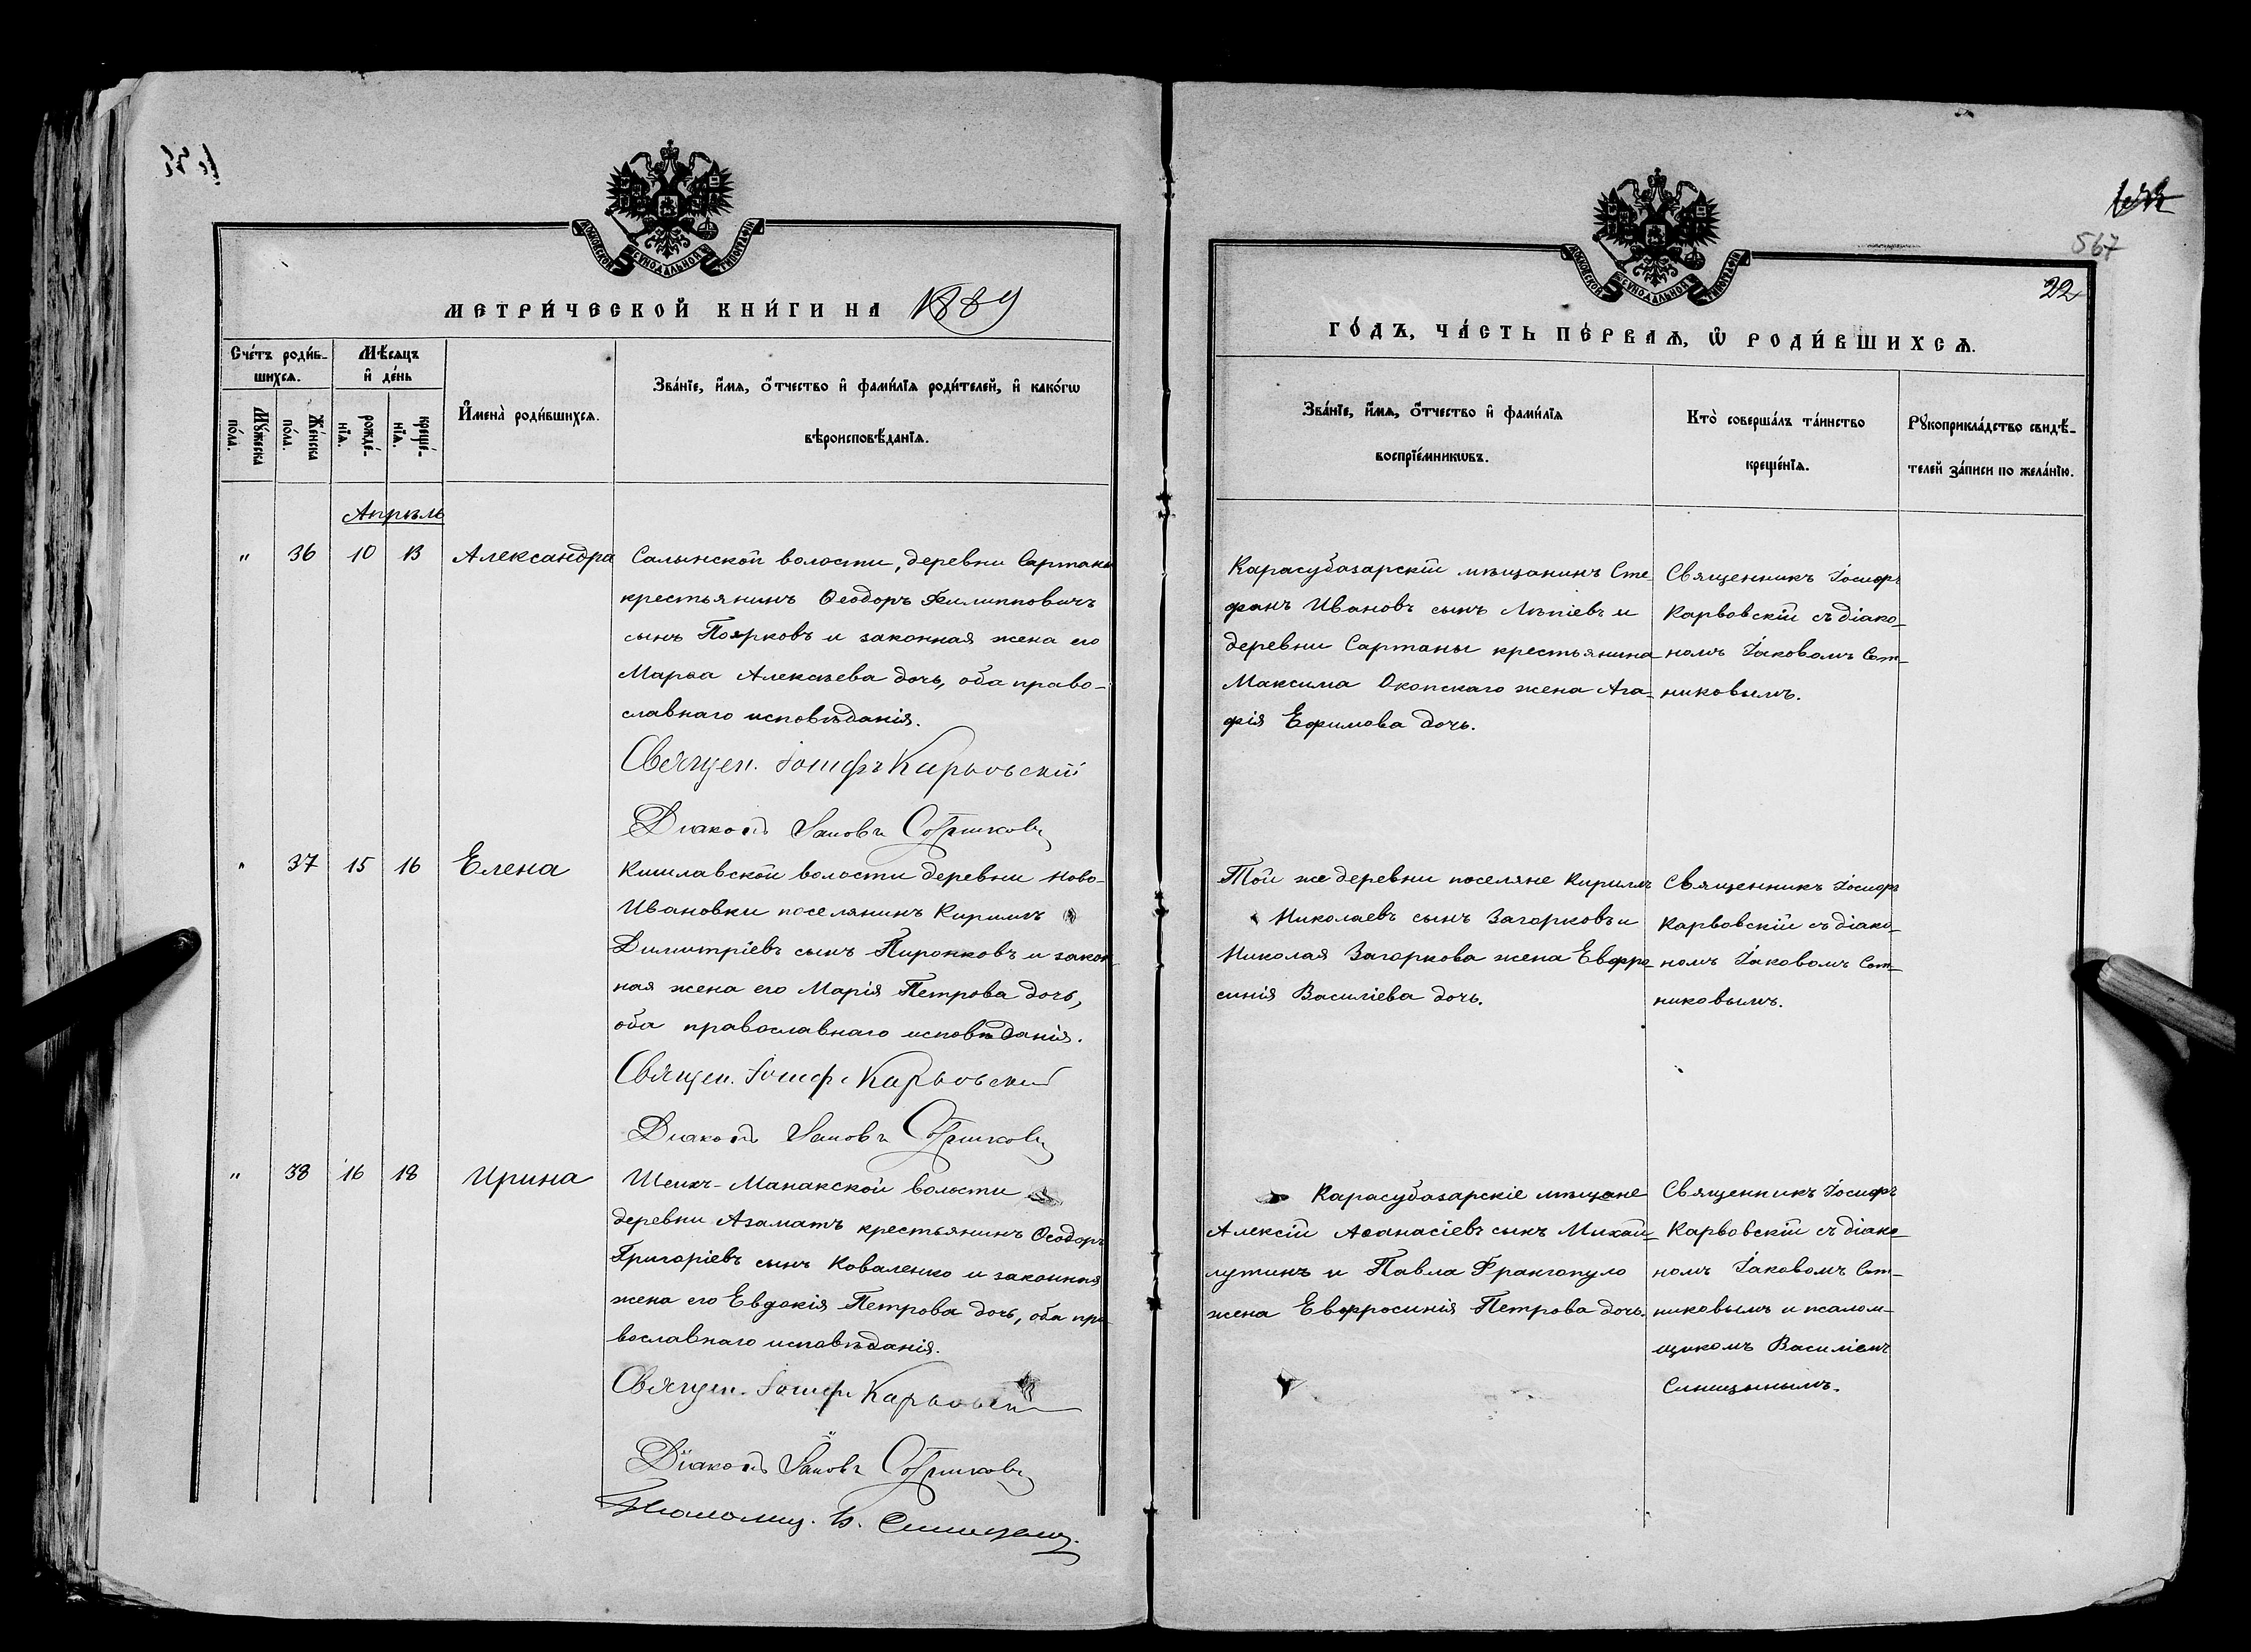 МОСКОВСКОЙ СУНОДАЛЬНОЙ ТИПОГРАФІИ
МЕТРИ́ЧЕСКОЙ КНИ́ГИ НА 1889
Сче́тъ роди́в-
шихсѧ.
Мѣ́сѧцъ
и҆ де́нь
Мꙋ́жеска
по́ла.
Же́нска
по́ла.
рожде́-
нїѧ.
креще́-
нїѧ.
И҆мена̀ роди́вшихсѧ.
Зва́нїе, и҆́мѧ, ѻ҆́тчество и҆ фами́лїѧ роди́телей, и҆ како́гѡ
вѣроисповѣ́данїѧ.
Апрѣль
" 36 10 13 Александра
Салынской волости, деревни Сартаны
крестьянинъ Ѳеодоръ Филипповичъ
сынъ Поярковъ и законная жена его
Марѳа Алексѣева дочь, оба право-
славнаго исповѣданія.
Священ. Іосифъ Карвовскій
Діаконъ Іаковъ Сотниковъ
" 37 15 16 Елена
Кишлавской волости деревни Ново-
Ивановки поселянинъ Кириллъ
Димитріевъ сынъ Пиронковъ и закон-
ная жена его Марія Петрова дочь,
оба православнаго исповѣданія.
Священ. Іосифъ Карвовскій
Діаконъ Іаковъ Сотниковъ
" 38 16 18 Ирина
Шейхъ-Манакской волости
деревни Азаматъ крестьянинъ Ѳеодоръ
Григоріевъ сынъ Коваленко и законная
жена его Евдокія Петрова дочь, оба пра-
вославнаго исповѣданія.
Священ. Іосифъ Карвовскій
Діаконъ Іаковъ Сотниковъ
Псаломщ. В. Синицынъ
567
22
МОСКОВСКОЙ СУНОДАЛЬНОЙ ТИПОГРАФІИ
ГО́ДЪ, ЧА́СТЬ ПЕ́РВАѦ, Ѡ҆ РОДИ́ВШИХСѦ.
Зва́нїе, и҆́мѧ, ѻ҆́тчество и҆ фами́лїѧ
воспрїе́мникѡвъ.
Кто̀ соверша́лъ та́инство
креще́нїѧ.
Рꙋкоприкла́дство свидѣ́-
телей за́писи по жела́нїю.
Карасубазарскій мѣщанинъ Сте-
фанъ Ивановъ сынъ Лѣпіевъ и
деревни Сартаны крестьянина
Максима Окопскаго жена Ага-
фія Ефимова дочь.
Священникъ Іосифъ
Карвовскій съ діако-
номъ Іаковомъ Сот-
никовымъ.
Той же деревни поселяне Кириллъ
Николаевъ сынъ Загорковъ и
Николая Загоркова жена Евфро-
синія Василіева дочь.
Священникъ Іосифъ
Карвовскій съ діако-
номъ Іаковомъ Сот-
никовымъ.
Карасубазарскіе мѣщане
Алексій Аѳанасіевъ сынъ Михай-
лутинъ и Павла Франгопуло
жена Евфросинія Петрова дочь.
Священникъ Іосифъ
Карвовскій съ діако-
номъ Іаковомъ Сот-
никовымъ и псалом-
щикомъ Василіемъ
Синицынымъ.